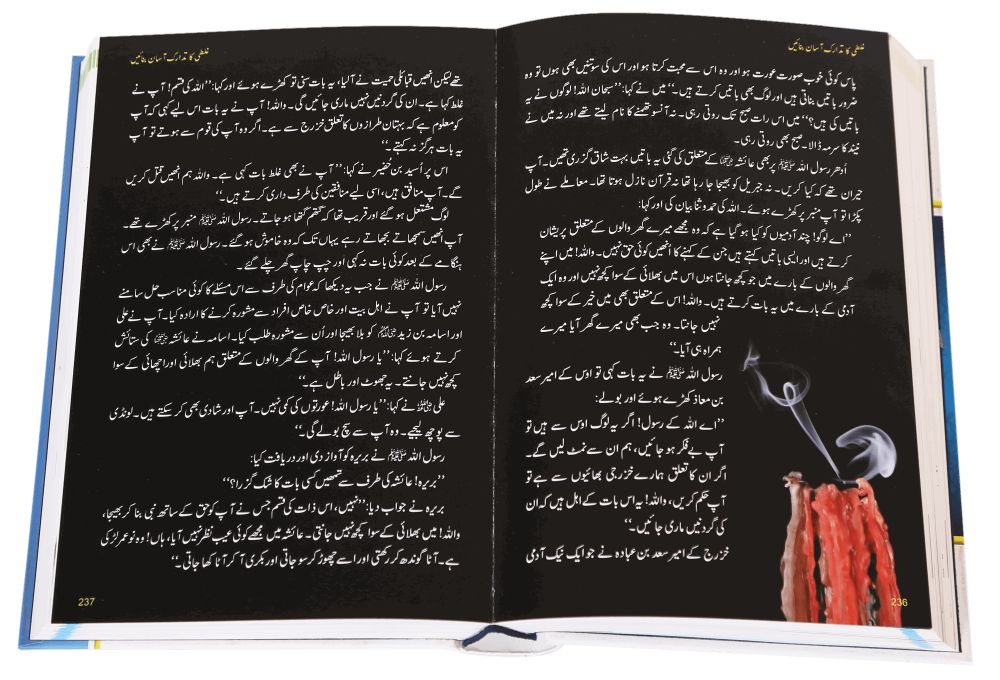 غلطی کا تدارک آسان بنائیں
پاس کوئی خوب صورت عورت ہو اور وہ اس سے محبت کرتا ہو اور اس کی سوتنیں بھی ہوں تو وہ
ضرور باتیں بناتی ہیں اور لوگ بھی باتیں کرتے ہیں۔‘‘ میں نے کہا: ’’سبحان اللہ! لوگوں نے یہ
باتیں کی ہیں؟‘‘ میں اس رات صبح تک روتی رہی۔ نہ آنسو تھمنے کا نام لیتے تھے اور نہ میں نے
نیند کا سرمہ ڈالا۔ صبح بھی روتی رہی۔
اُدھر رسول اللہ ﷺ پر بھی عائشہ رضی اللہ عنہا کے متعلق کی گئی یہ باتیں بہت شاق گزری تھیں۔ آپ
حیران تھے کہ کیا کریں۔ نہ جبریل کو بھیجا جا رہا تھا نہ قرآن نازل ہوتا تھا۔ معاملے نے طول
پکڑا تو آپ منبر پر کھڑے ہوئے۔ اللہ کی حمد و ثنا بیان کی اور کہا:
’’اے لوگو! چند آدمیوں کو کیا ہو گیا ہے کہ وہ مجھے میرے گھر والوں کے متعلق پریشان
کرتے ہیں اور ایسی باتیں کہتے ہیں جن کے کہنے کا انھیں کوئی حق نہیں۔ واللہ! میں اپنے
گھر والوں کے بارے میں جو کچھ جانتا ہوں اس میں بھلائی کے سوا کچھ نہیں اور وہ ایک
آدمی کے بارے میں یہ بات کرتے ہیں۔ واللہ! اس کے متعلق بھی میں خیر کے سوا کچھ
نہیں جانتا۔ وہ جب بھی میرے گھر آیا میرے
ہمراہ ہی آیا۔‘‘
رسول اللہ ﷺ نے یہ بات کہی تو اوس کے امیر سعد
بن معاذ کھڑے ہوئے اور بولے:
’’اے اللہ کے رسول! اگر یہ لوگ اوس سے ہیں تو
آپ بے فکر ہو جائیں، ہم ان سے نمٹ لیں گے۔
اگر ان کا تعلق ہمارے خزرجی بھائیوں سے ہے تو
آپ حکم کریں، واللہ! یہ اس بات کے اہل ہیں کہ ان
کی گردنیں ماری جائیں۔‘‘
خزرج کے امیر سعد بن عبادہ نے جو ایک نیک آدمی
236
غلطی کا تدارک آسان بنائیں
تھے لیکن انھیں قبائلی حمیت نے آ لیا، یہ بات سنی تو کھڑے ہوئے اور کہا: ’’اللہ کی قسم! آپ نے
غلط کہا ہے۔ ان کی گردنیں نہیں ماری جائیں گی۔ واللہ! آپ نے یہ بات اس لیے کہی کہ آپ
کو معلوم ہے کہ بہتان طرازوں کا تعلق خزرج سے ہے۔ اگر وہ آپ کی قوم سے ہوتے تو آپ
یہ بات ہرگز نہ کہتے۔‘‘
اس پر اُسید بن حُضیر نے کہا: ’’آپ نے بھی غلط بات کہی ہے۔ واللہ ہم انھیں قتل کریں
گے۔ آپ منافق ہیں، اسی لیے منافقین کی طرف داری کرتے ہیں۔‘‘
لوگ مشتعل ہو گئے اور قریب تھا کہ گتھم گتھا ہو جاتے۔ رسول اللہ ﷺ منبر پر کھڑے تھے۔
آپ انھیں سمجھاتے بجھاتے رہے یہاں تک کہ وہ خاموش ہو گئے۔ رسول اللہ ﷺ نے بھی اس
ہنگامے کے بعد کوئی بات نہ کہی اور چپ چاپ گھر چلے گئے۔
رسول اللہ ﷺ نے جب یہ دیکھا کہ عوام کی طرف سے اس مسئلے کا کوئی مناسب حل سامنے
نہیں آیا تو آپ نے اہل بیت اور خاص خاص افراد سے مشورہ کرنے کا ارادہ کیا۔ آپ نے علی
اور اسامہ بن زید رضی اللہ عنہم کو بلا بھیجا اور اُن سے مشورہ طلب کیا۔ اسامہ نے عائشہ رضی اللہ عنہا کی ستائش
کرتے ہوئے کہا: ’’یا رسول اللہ! آپ کے گھر والوں کے متعلق ہم بھلائی اور اچھائی کے سوا
کچھ نہیں جانتے۔ یہ جھوٹ اور باطل ہے۔‘‘
علی رضی اللہ عنہ نے کہا: ’’یا رسول اللہ! عورتوں کی کمی نہیں۔ آپ اور شادی بھی کر سکتے ہیں۔ لونڈی
سے پوچھ لیجیے۔ وہ آپ سے سچ بولے گی۔‘‘
رسول اللہ ﷺ نے بریرہ کو آواز دی اور دریافت کیا:
’’بریرہ! عائشہ کی طرف سے تمھیں کسی بات کا شک گزرا؟‘‘
بریرہ نے جواب دیا: ’’نہیں، اس ذات کی قسم جس نے آپ کو حق کے ساتھ نبی بنا کر بھیجا،
واللہ! میں بھلائی کے سوا کچھ نہیں جانتی۔ عائشہ میں مجھے کوئی عیب نظر نہیں آیا، ہاں! وہ نو عمر لڑکی
ہے۔ آٹا گوندھ کر رکھتی اور اسے چھوڑ کر سو جاتی اور بکری آ کر آٹا کھا جاتی۔‘‘
237